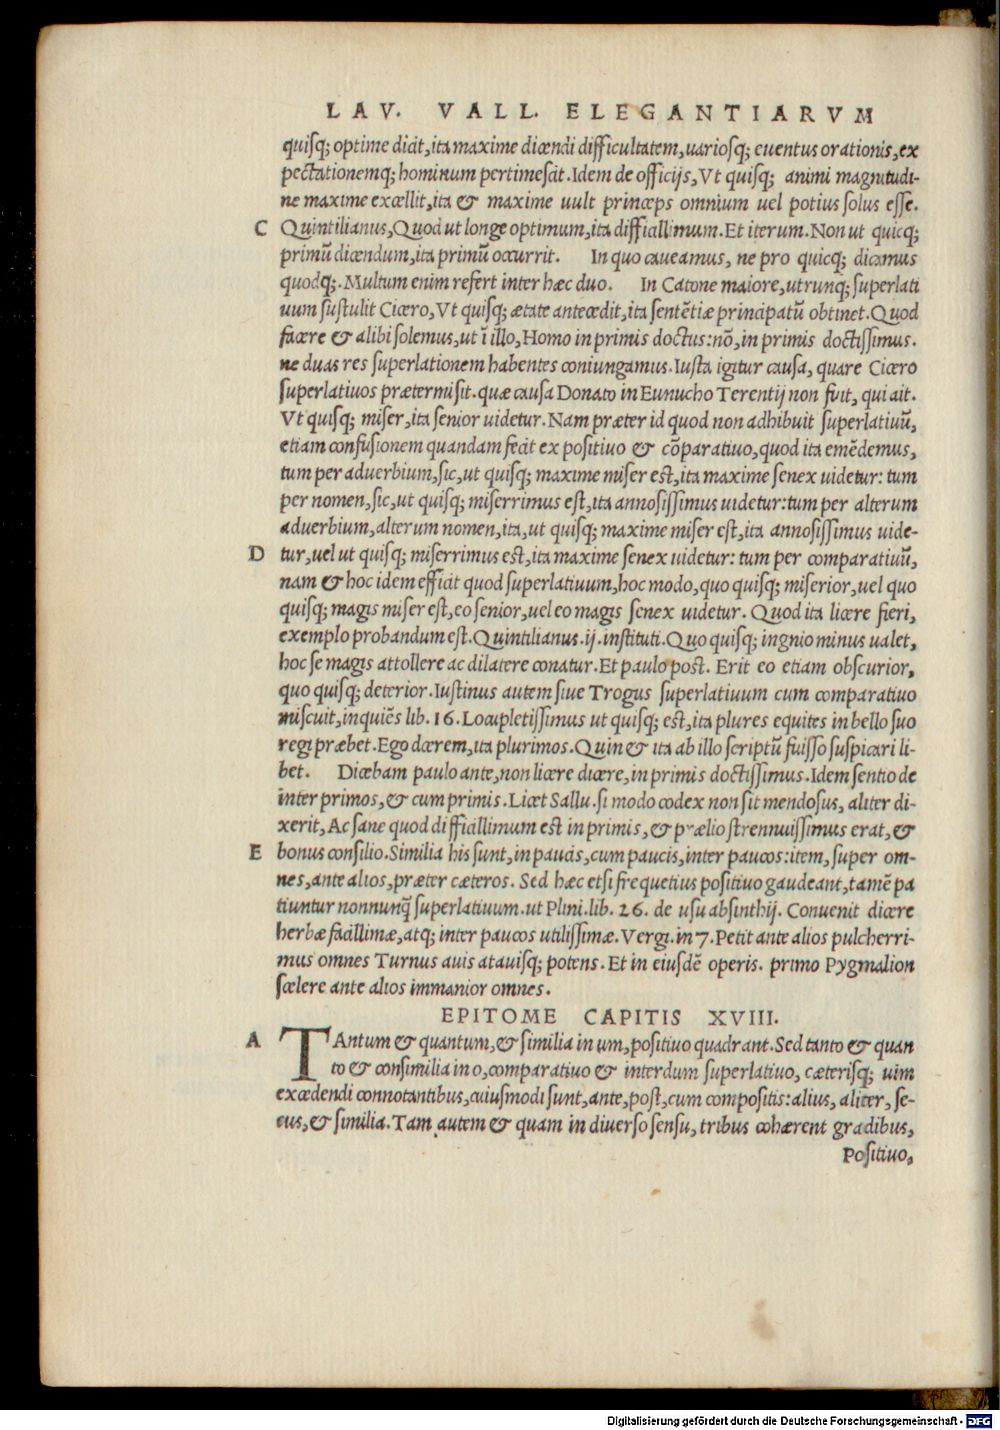 LAV. VALL. ELEGANTIARVM
quisq; optime dicit, ita maxime dicendi difficultatem, uariosq; euentus orationis, ex
pectationemq; hominum pertimescit. Idem de officijs, Vt quisq; animi magnitudi-
ne maxime excellit, ita & maxime uult princeps omnium uel potius solus esse.
C Quintilianus, Quod ut longe optimum, ita difficillimum. Et iterum. Non ut quicq;
primũ dicendum, ita primũ occurrit. In quo caueamus, ne pro quicq; dicamus
quodq;. Multum enim refert inter hæc duo. In Catone maiore, utrunq; superlati
uum sustulit Cicero, Vt quisq; ætate antecedit, ita sentẽtiæ principatũ obtinet. Quod
facere & alibi solemus, ut ĩ illo, Homo in primis doctus: nõ, in primis doctissimus.
ne duas res superlationem habentes coniungamus. Iusta igitur causa, quare Cicero
superlatiuos prætermisit. quæ causa Donato in Eunucho Terentij non fuit, qui ait.
Vt quisq; miser, ita senior uidetur. Nam præter id quod non adhibuit superlatiuũ,
etiam confusionem quandam fecit ex positiuo & cõparatiuo, quod ita emẽdemus,
tum per aduerbium, sic, ut quisq; maxime miser est, ita maxime senex uidetur: tum
per nomen, sic, ut quisq; miserrimus est, ita annosissimus uidetur: tum per alterum
aduerbium, alterum nomen, ita, ut quisq; maxime miser est, ita annosissimus uide-
D tur, uel ut quisq; miserrimus est, ita maxime senex uidetur: tum per comparatiuũ,
nam & hoc idem efficit quod superlatiuum, hoc modo, quo quisq; miserior, uel quo
quisq; magis miser est, eo senior, uel eo magis senex uidetur. Quod ita licere fieri,
exemplo probandum est. Quintilianus .ij. instituti. Quo quisq; ingnio minus ualet,
hoc se magis attollere ac dilatere conatur. Et paulo post. Erit eo etiam obscurior,
quo quisq; deterior. Iustinus autem siue Trogus superlatiuum cum comparatiuo
miscuit, inquiẽs lib. 16. Locupletissimus ut quisq; est, ita plures equites in bello suo
regi præbet. Ego docerem, ita plurimos. Quin & ita ab illo scriptũ fuisso suspicari li-
bet. Dicebam paulo ante, non licere dicere, in primis doctissimus. Idem sentio de
inter primos, & cum primis. Licet Sallu. si modo codex non sit mendosus, aliter di-
xerit, Ac sane quod difficillimum est in primis, & prælio strennuissimus erat, &
E bonus consilio. Similia his sunt, in paucis, cum paucis, inter paucos: item, super om-
nes, ante alios, præter cæteros. Sed hæc etsi frequetius positiuo gaudeant, tamẽ pa
tiuntur nonnunq̃ superlatiuum. ut Plini. lib. 26. de usu absinthij. Conuenit dicere
herbæ facillimæ, atq; inter paucos utilissimæ. Vergi. in 7. Petit ante alios pulcherri-
mus omnes Turnus auis atauisq; potens. Et in eiusdẽ operis. primo Pygmalion
scelere ante alios immanior omnes.
EPITOME CAPITIS XVIII.
A TAntum & quantum, & similia in um, positiuo quadrant. Sed tanto & quan
to & consimilia in o, comparatiuo & interdum superlatiuo, cæterisq; uim
excedendi connotantibus, cuiusmodi sunt, ante, post, cum compositis: alius, aliter, se-
cus, & similia. Tam autem & quam in diuerso sensu, tribus cohærent gradibus,
Positiuo,
Digitalisierung gefördert durch die Deutsche Forschungsgemeinschaft - DFG